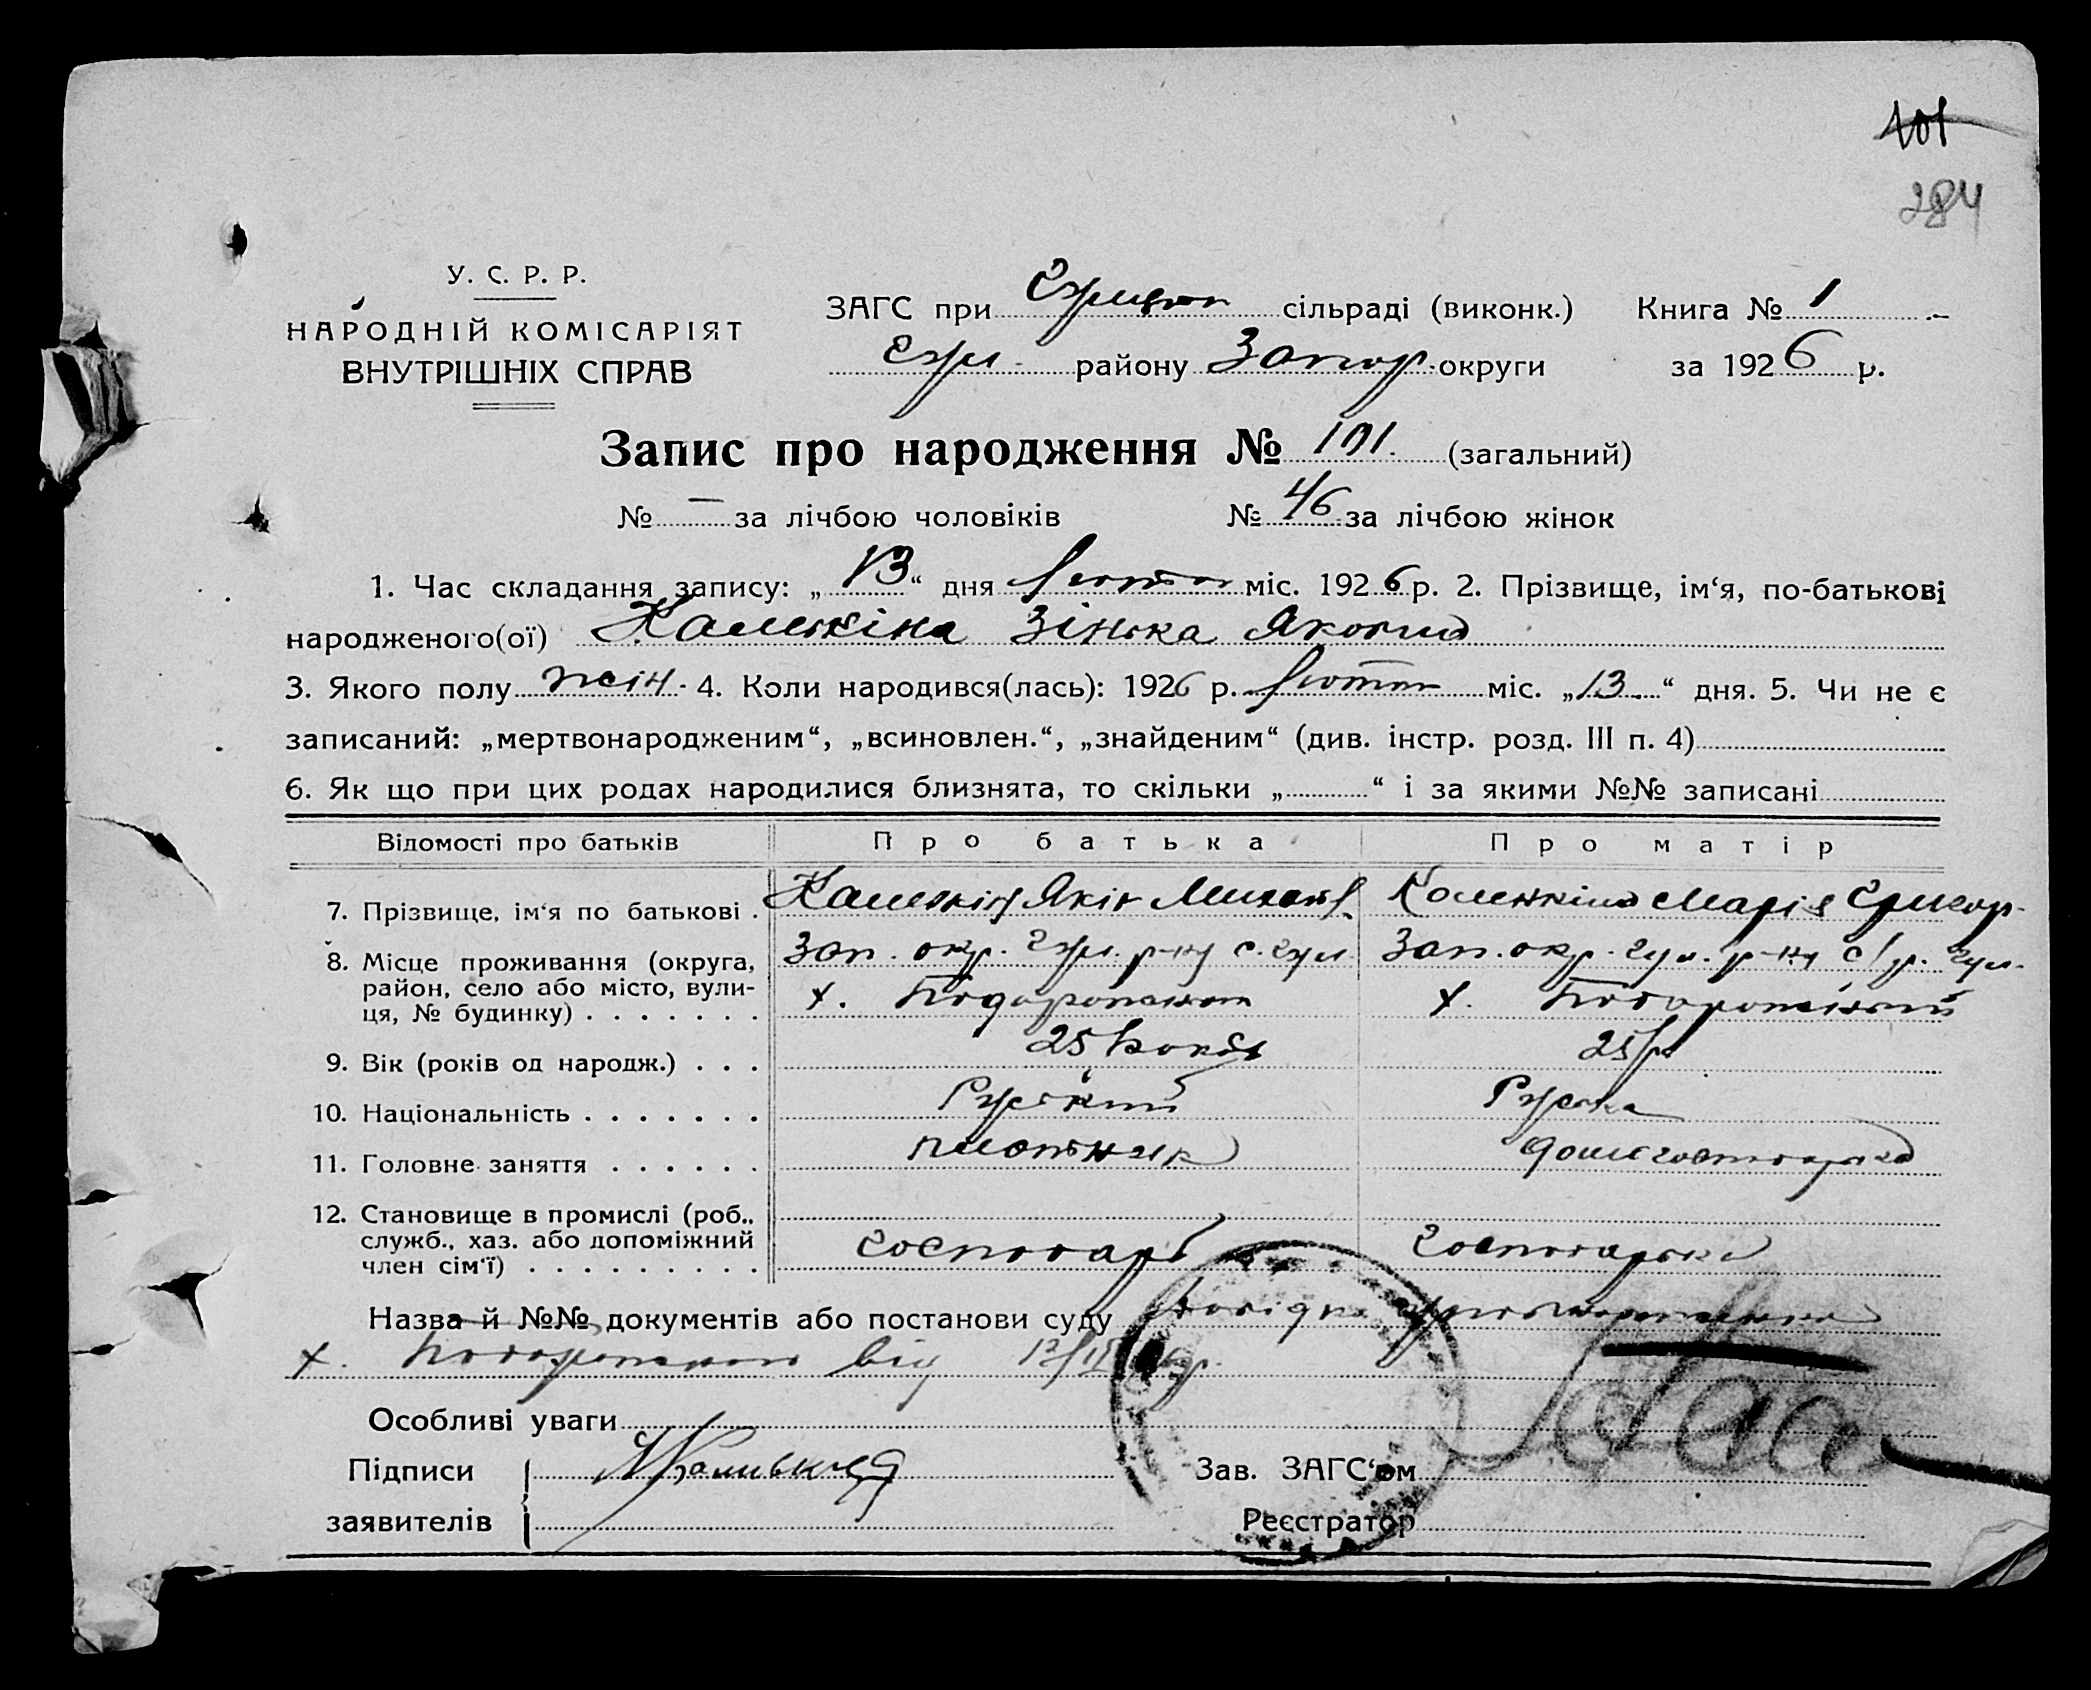 101
284
У. С. Р. Р.
НАРОДНІЙ КОМІСАРІЯТ
ВНУТРІШНІХ СПРАВ
ЗАГС при сільраді (виконк.) Книга № 1
Гул. району Запор. округи за 1926 р.
Запис про народження № 101. (загальний)
№ — за лічбою чоловіків № 46 за лічбою жінок
1. Час складання запису: „13“ дня лютого міс. 1926 р. 2. Прізвище, ім‘я, по-батькові
народженого(ої) Калинкіна Зінька Яковна
3. Якого полу жін. 4. Коли народився(лась): 1926 р. лютого міс. „13“ дня. 5. Чи не є
записаний: „мертвонародженим“, „всиновлен.“, „знайденим“ (див. інстр. розд. III п. 4)
6. Як що при цих родах народилися близнята, то скільки „ “ і за якими №№ записані
Відомості про батьків Про батька Про матір
7. Прізвище, ім‘я по батькові . Яків Михайл. Марія Григор.
8. Місце проживання (округа, Зап. окр. Гул. р-ну с. Гул. Зап. окр. Гул. р-ну с/р. Гул.
район, село або місто, вули- х. х.
ця, № будинку)
9. Вік (років од народж.) 25 років 25 р.
10. Національність Руський Руська
11. Головне заняття плотник домогосподарка
12. Становище в промислі (роб.,
служб., хаз. або допоміжний господарь господарька
член сім‘ї)
Назва й №№ документів або постанови суду Посвідка
х. від
Особливі уваги
Підписи Зав. ЗАГС‘ом
заявителів Реєстратор